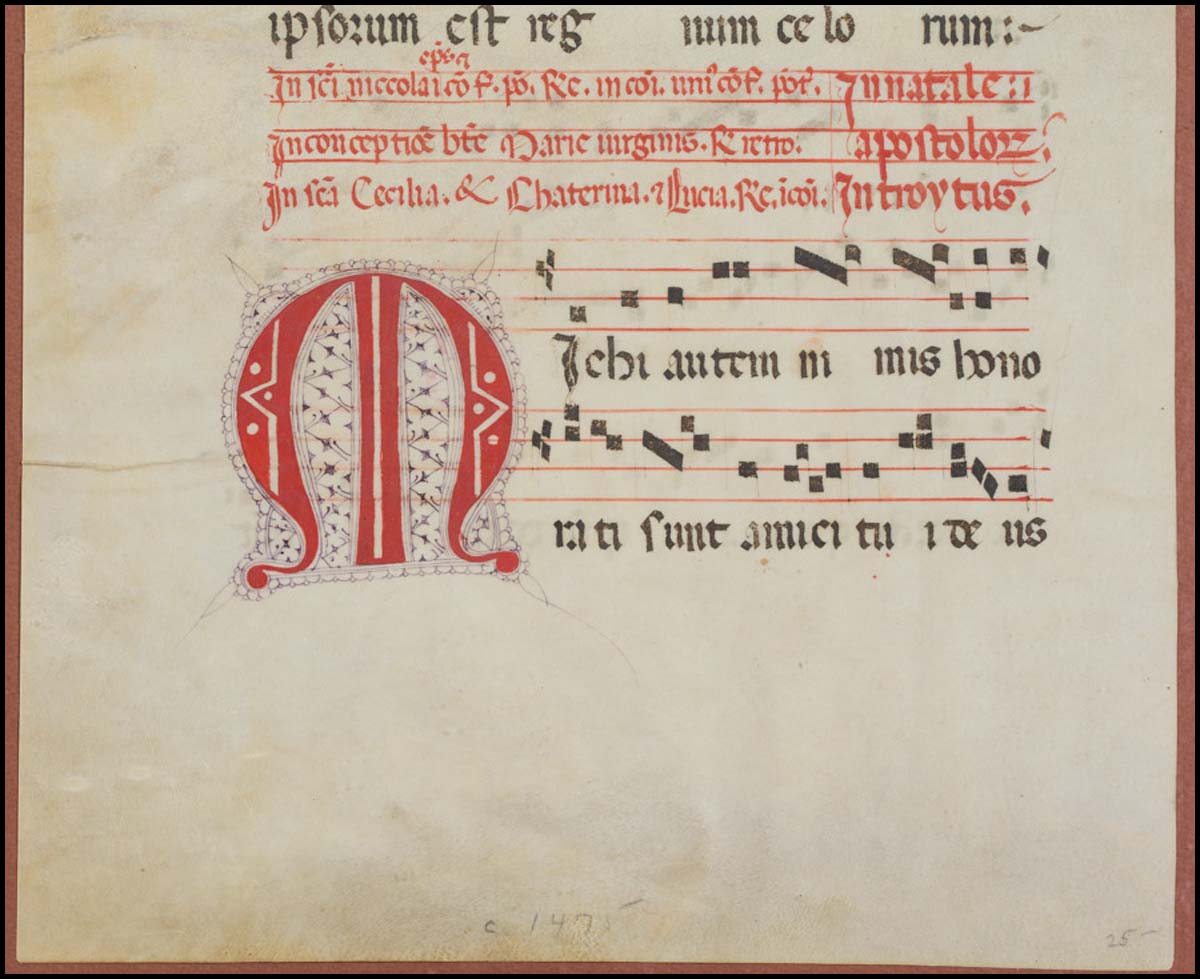 ipsorum est reg num ce lo rum :~
ep̄i. ⁊
In sc̄i niccolai cōf. pō. Re. in coī. uniꝰ cōf. pōt. In natale :
In conceptiōe btē Marie uirginis. R retro. apostoloꝝ.
In sc̄a Cecilia. & Chaterina. ⁊ Lucia. Re. ī coī. Introytus.
M Ichi autem ni mis hono
ra ti sunt amici tu i de us
c 1475
25 –